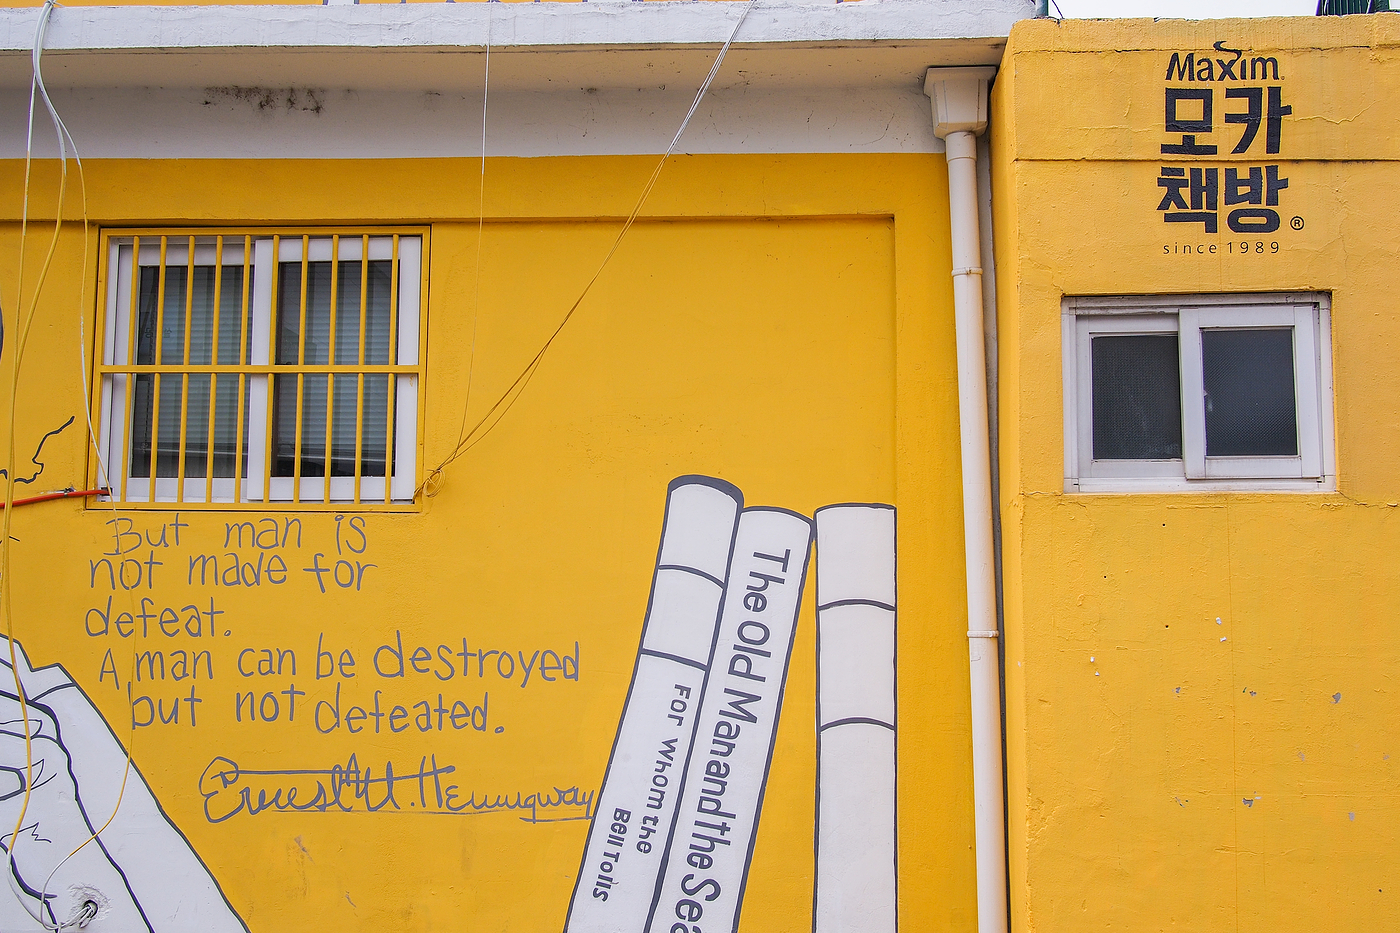 But man is
not made for
defeat.
A man can be destroyed
but not defeated.
Ernest M. Hemingway
For whom the
Bell Tolls
The Old Man and the Sea
Maxim
모카
책방®
since 1989